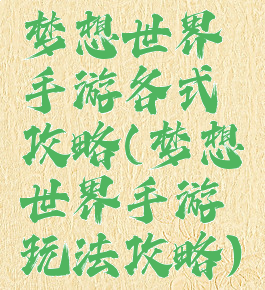 梦想世界
手游各式
攻略(梦想
世界手游
玩法攻略)